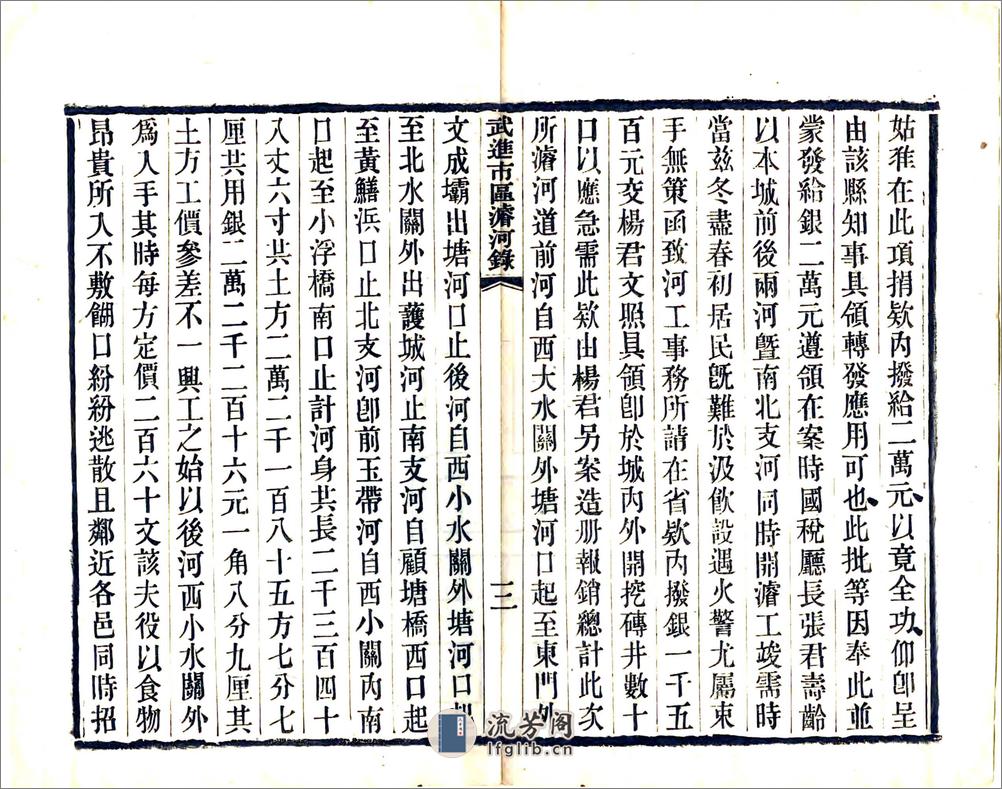 姑准在此項捐欵內撥給二萬元以竟全功仰卽呈
由該縣知事具領轉發應用可也此批等因奉此並
蒙發給銀二萬元遵領在案時國稅廳長張君壽齡
以本城前後兩河曁南北支河同時開濬工竣需時
當茲冬盡春初居民旣難於汲飮設遇火警尤屬束
手無策函致河工事務所請在省欵內撥銀一千五
百元交楊君文照具領卽於城內外開挖磚井數十
口以應急需此欵由楊君另案造册報銷總計此次
所濬河道前河自西大水關外塘河口起至東門外
武進市區濬河錄
三
文成壩出塘河口止後河自西小水關外塘河口起
至北水關外出護城河止南支河自顧塘橋西口起
至黃鱔浜口止北支河卽前玉帶河自西小關內南
口起至小浮橋南口止計河身共長二千三百四十
八丈六寸共土方二萬二千一百八十五方七分七
厘共用銀二萬二千二百十六元一角八分九厘其
土方工價參差不一興工之始以後河西小水關外
爲入手其時每方定價二百六十文該夫役以食物
昂貴所入不敷餬口紛紛逃散且鄰近各邑同時招
流芳阁
lfglib.cn